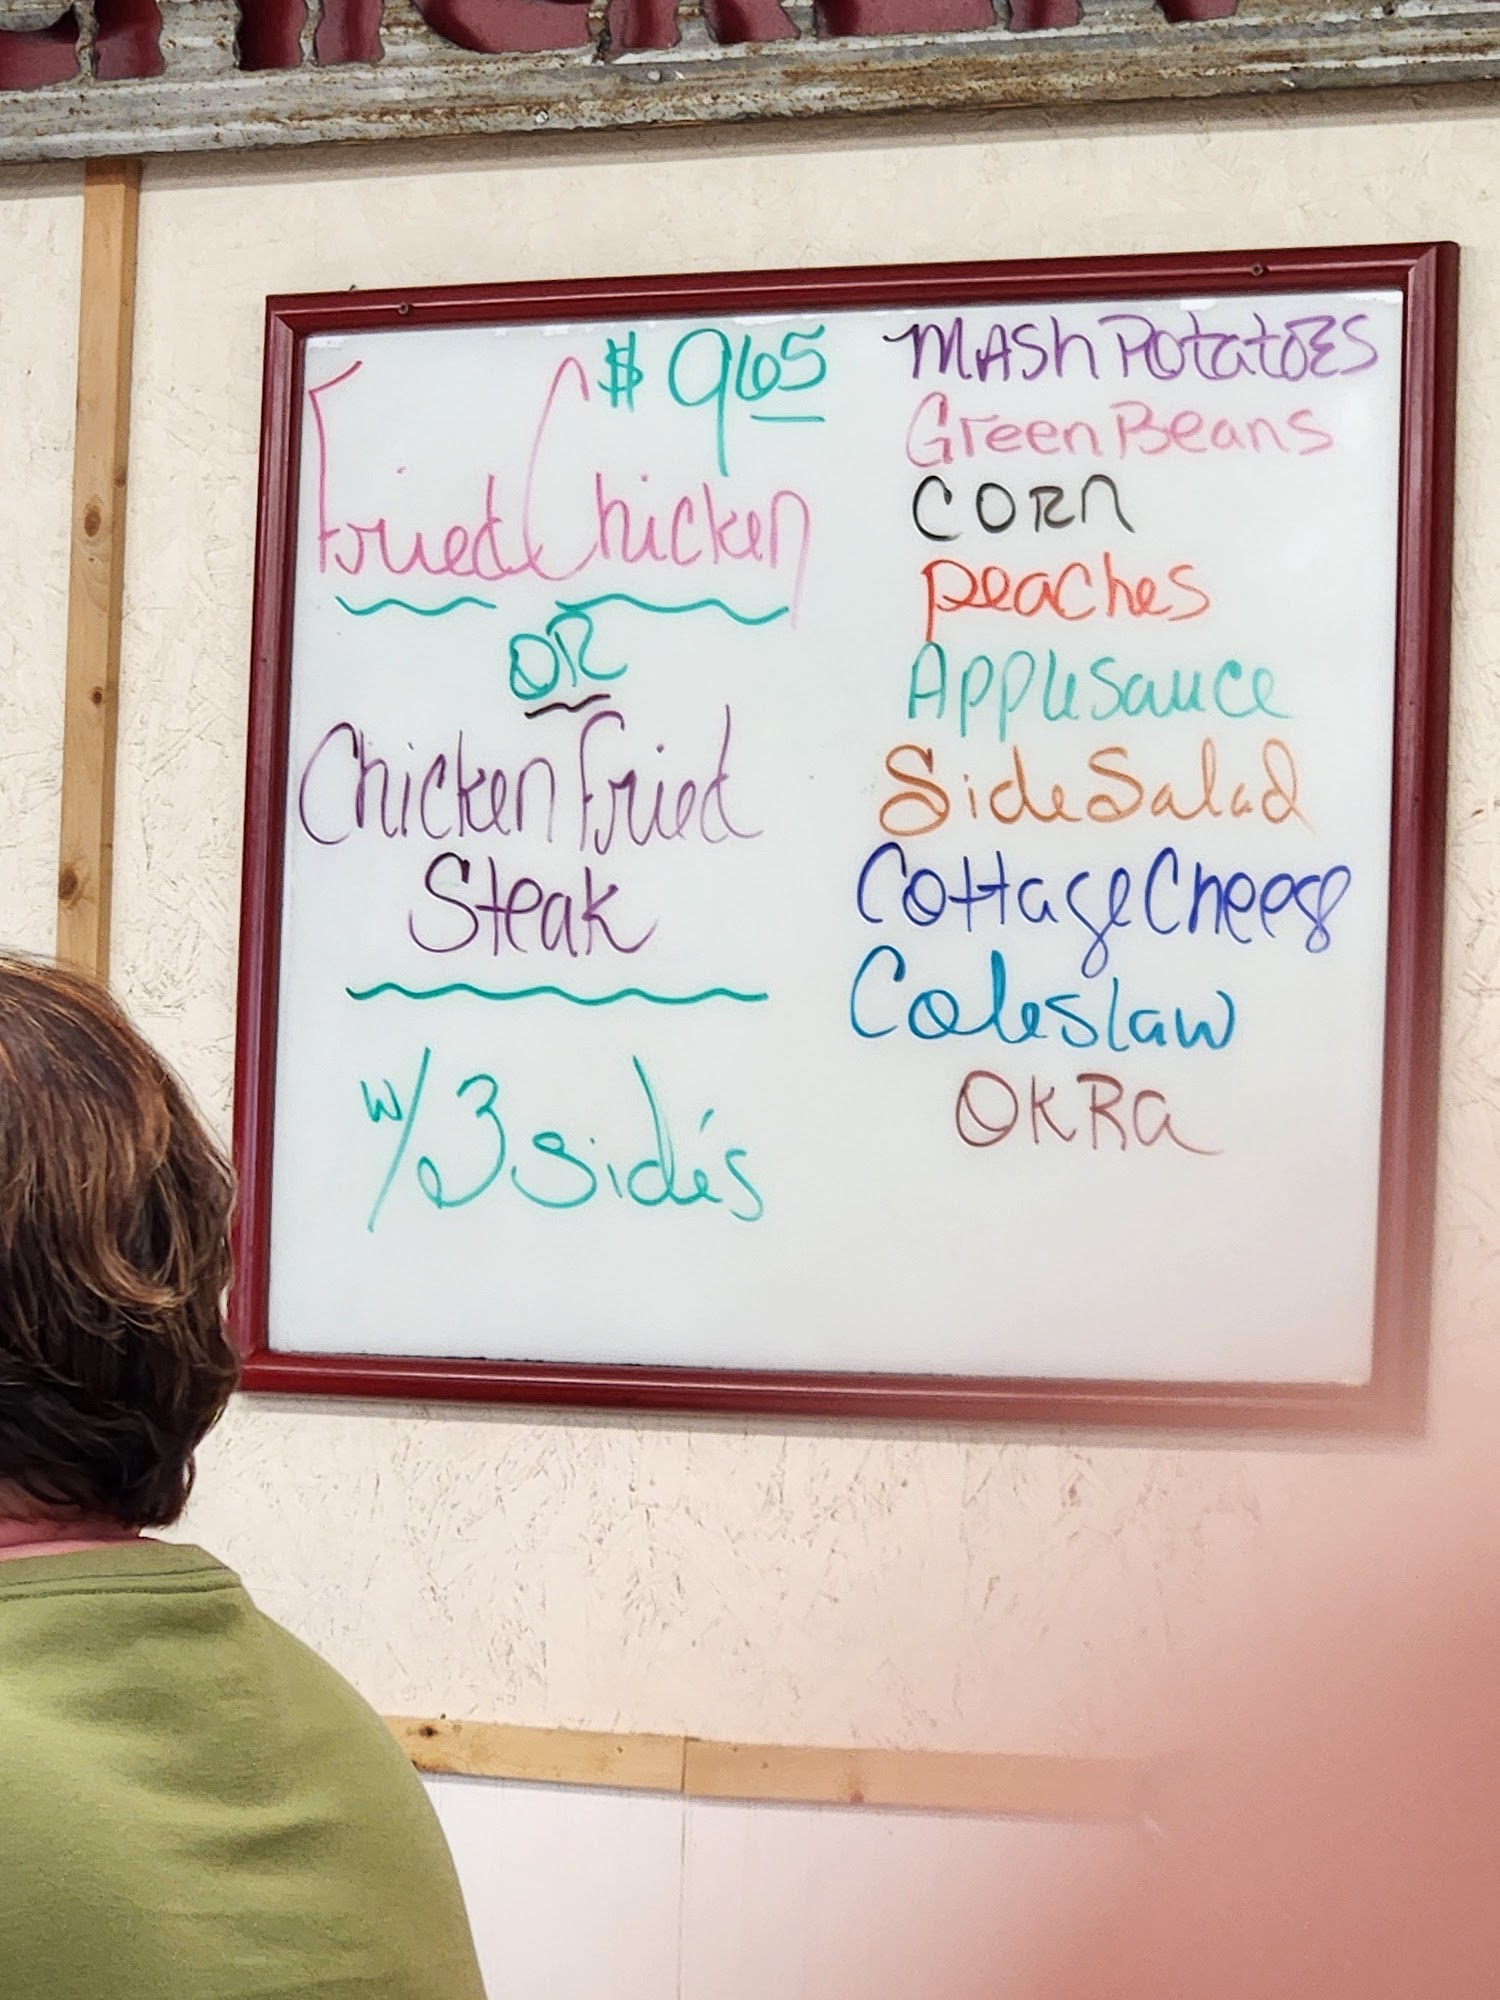 $ 965
Fried Chicken
OR
Chicken Fried
Steak
w/ 3 side's
MASh Potatoes
Green Beans
CORn
peaches
Applesauce
Side Salad
Cottage Cheese
Coleslaw
OKRa